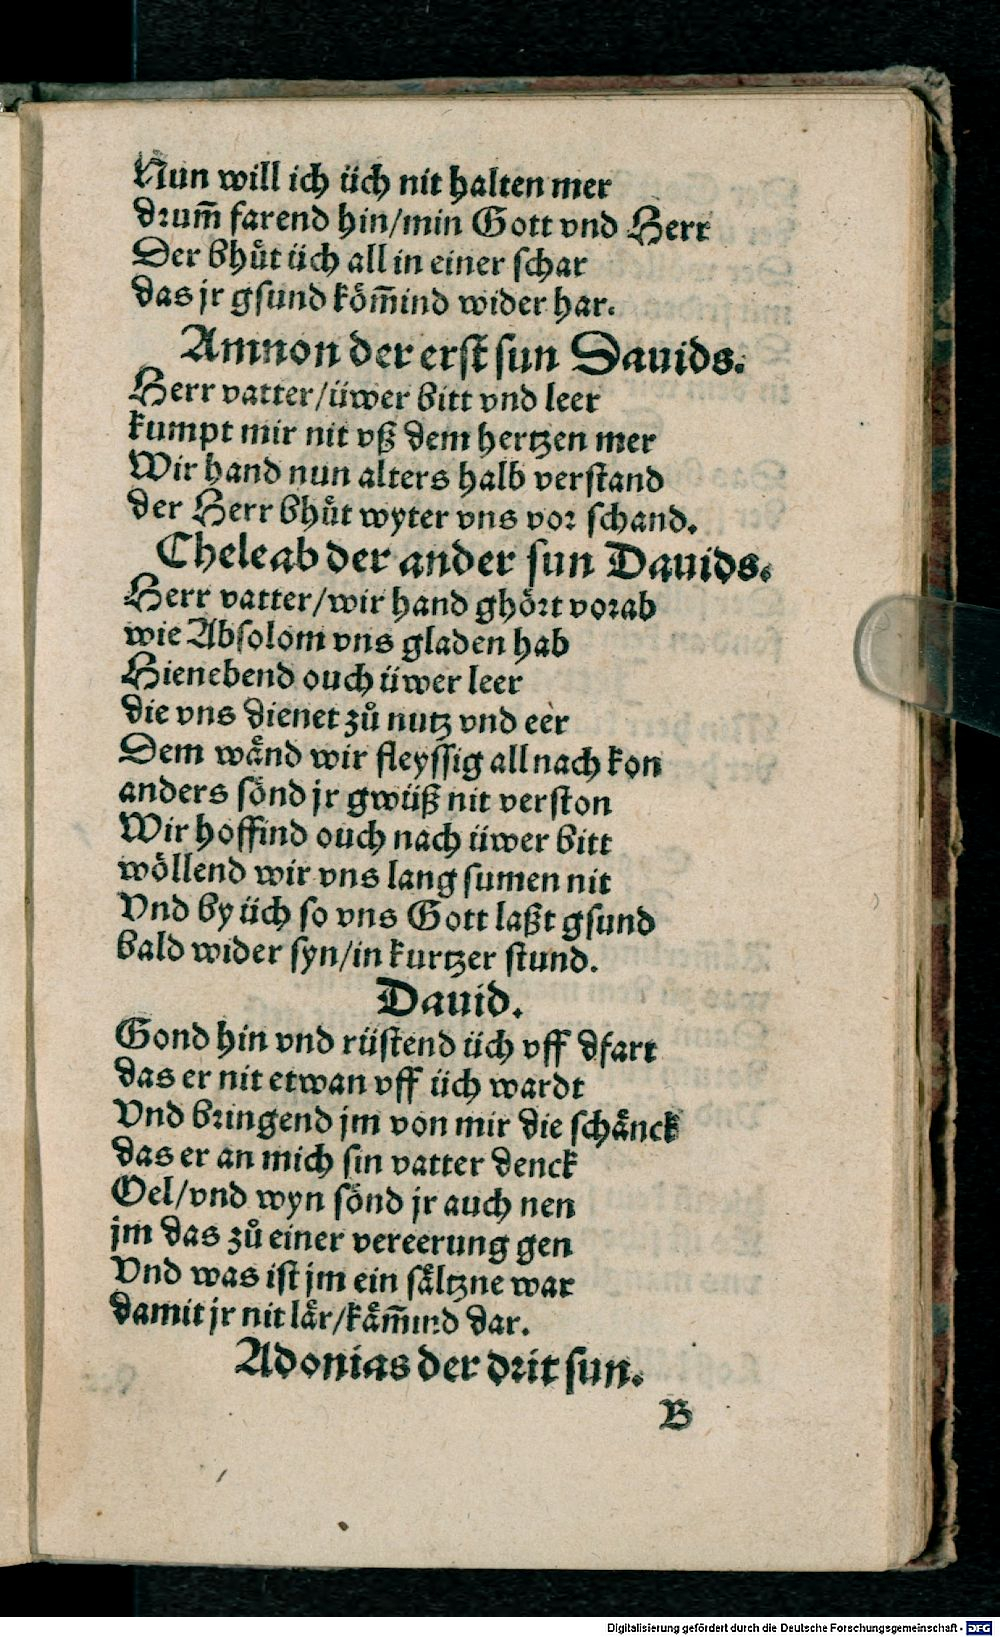 Nun will ich üch nit halten mer
drum̄ farend hin/min Gott vnd Herr
Der bhuͤt üch all in einer schar
das jr gsund koͤm̄ind wider har.
Amnon der erst sun Dauids.
Herr vatter/üwer bitt vnd leer
kumpt mir nit vß dem hertzen mer
Wir hand nun alters halb verstand
der Herr bhuͤt wyter vns vor schand.
Cheleab der ander sun Dauids.
Herr vatter/wir hand ghoͤrt vorab
wie Absolom vns gladen hab
Hienebend ouch üwer leer
die vns dienet zuͦ nutz vnd eer
Dem waͤnd wir fleyssig all nach kon
anders soͤnd jr gwüß nit verston
Wir hoffind ouch nach üwer bitt
woͤllend wir vns lang sumen nit
Vnd by üch so vns Gott laßt gsund
bald wider syn/in kurtzer stund.
Dauid.
Gond hin vnd rüstend üch vff dfart
das er nit etwan vff üch wardt
Vnd bringend jm von mir die schaͤnck
das er an mich sin vatter denck
Oel/vnd wyn soͤnd jr auch nen
jm das zuͦ einer vereerung gen
Vnd was ist jm ein saͤltzne war
damit jr nit laͤr/kaͤm̄ind dar.
Adonias der drit sun.
B
Digitalisierung gefördert durch die Deutsche Forschungsgemeinschaft - DFG